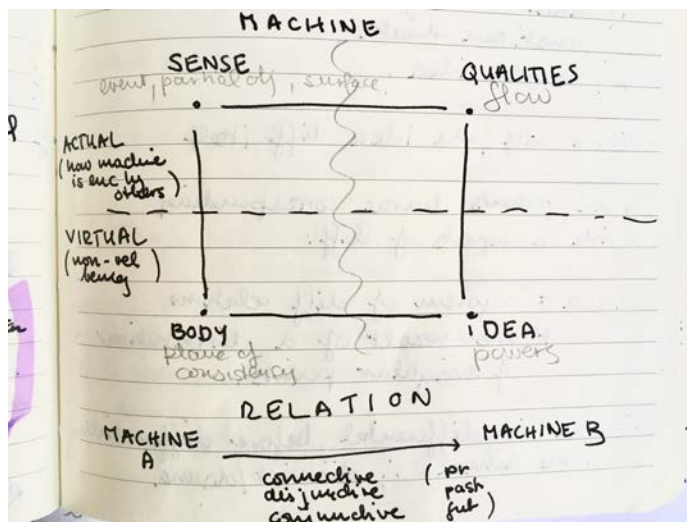 MACHINE
SENSE
event, partial obj, surface
QUALITIES
flow
ACTUAL
(how machine
is enc by
others)
VIRTUAL
(non-rel
BODY
plane of
consistency
IDEA
powers
RELATION
MACHINE
A
MACHINE B
connective
disjunctive
conjunctive
(pr
past
fut)